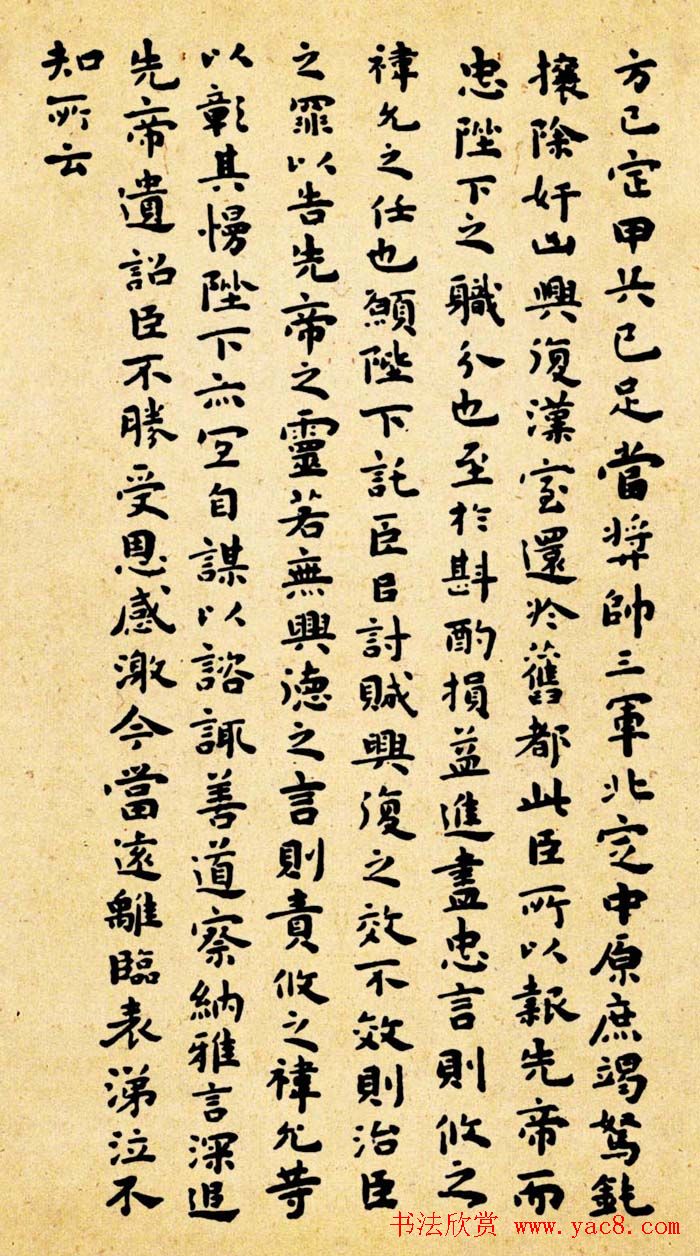 方已定甲兵已足當獎帥三軍北定中原庶竭駑鈍
攘除奸凶興復漢室還於舊都此臣所以報先帝而
忠陛下之職分也至於斟酌損益進盡忠言則攸之
禕允之任也願陛下託臣以討賊興復之效不效則治臣
之罪以告先帝之靈若無興德之言則責攸之禕允等
以彰其慢陛下亦宜自謀以諮諏善道察納雅言深追
先帝遺詔臣不勝受恩感激今當遠離臨表涕泣不
知所云
书法欣赏 www.yac8.com